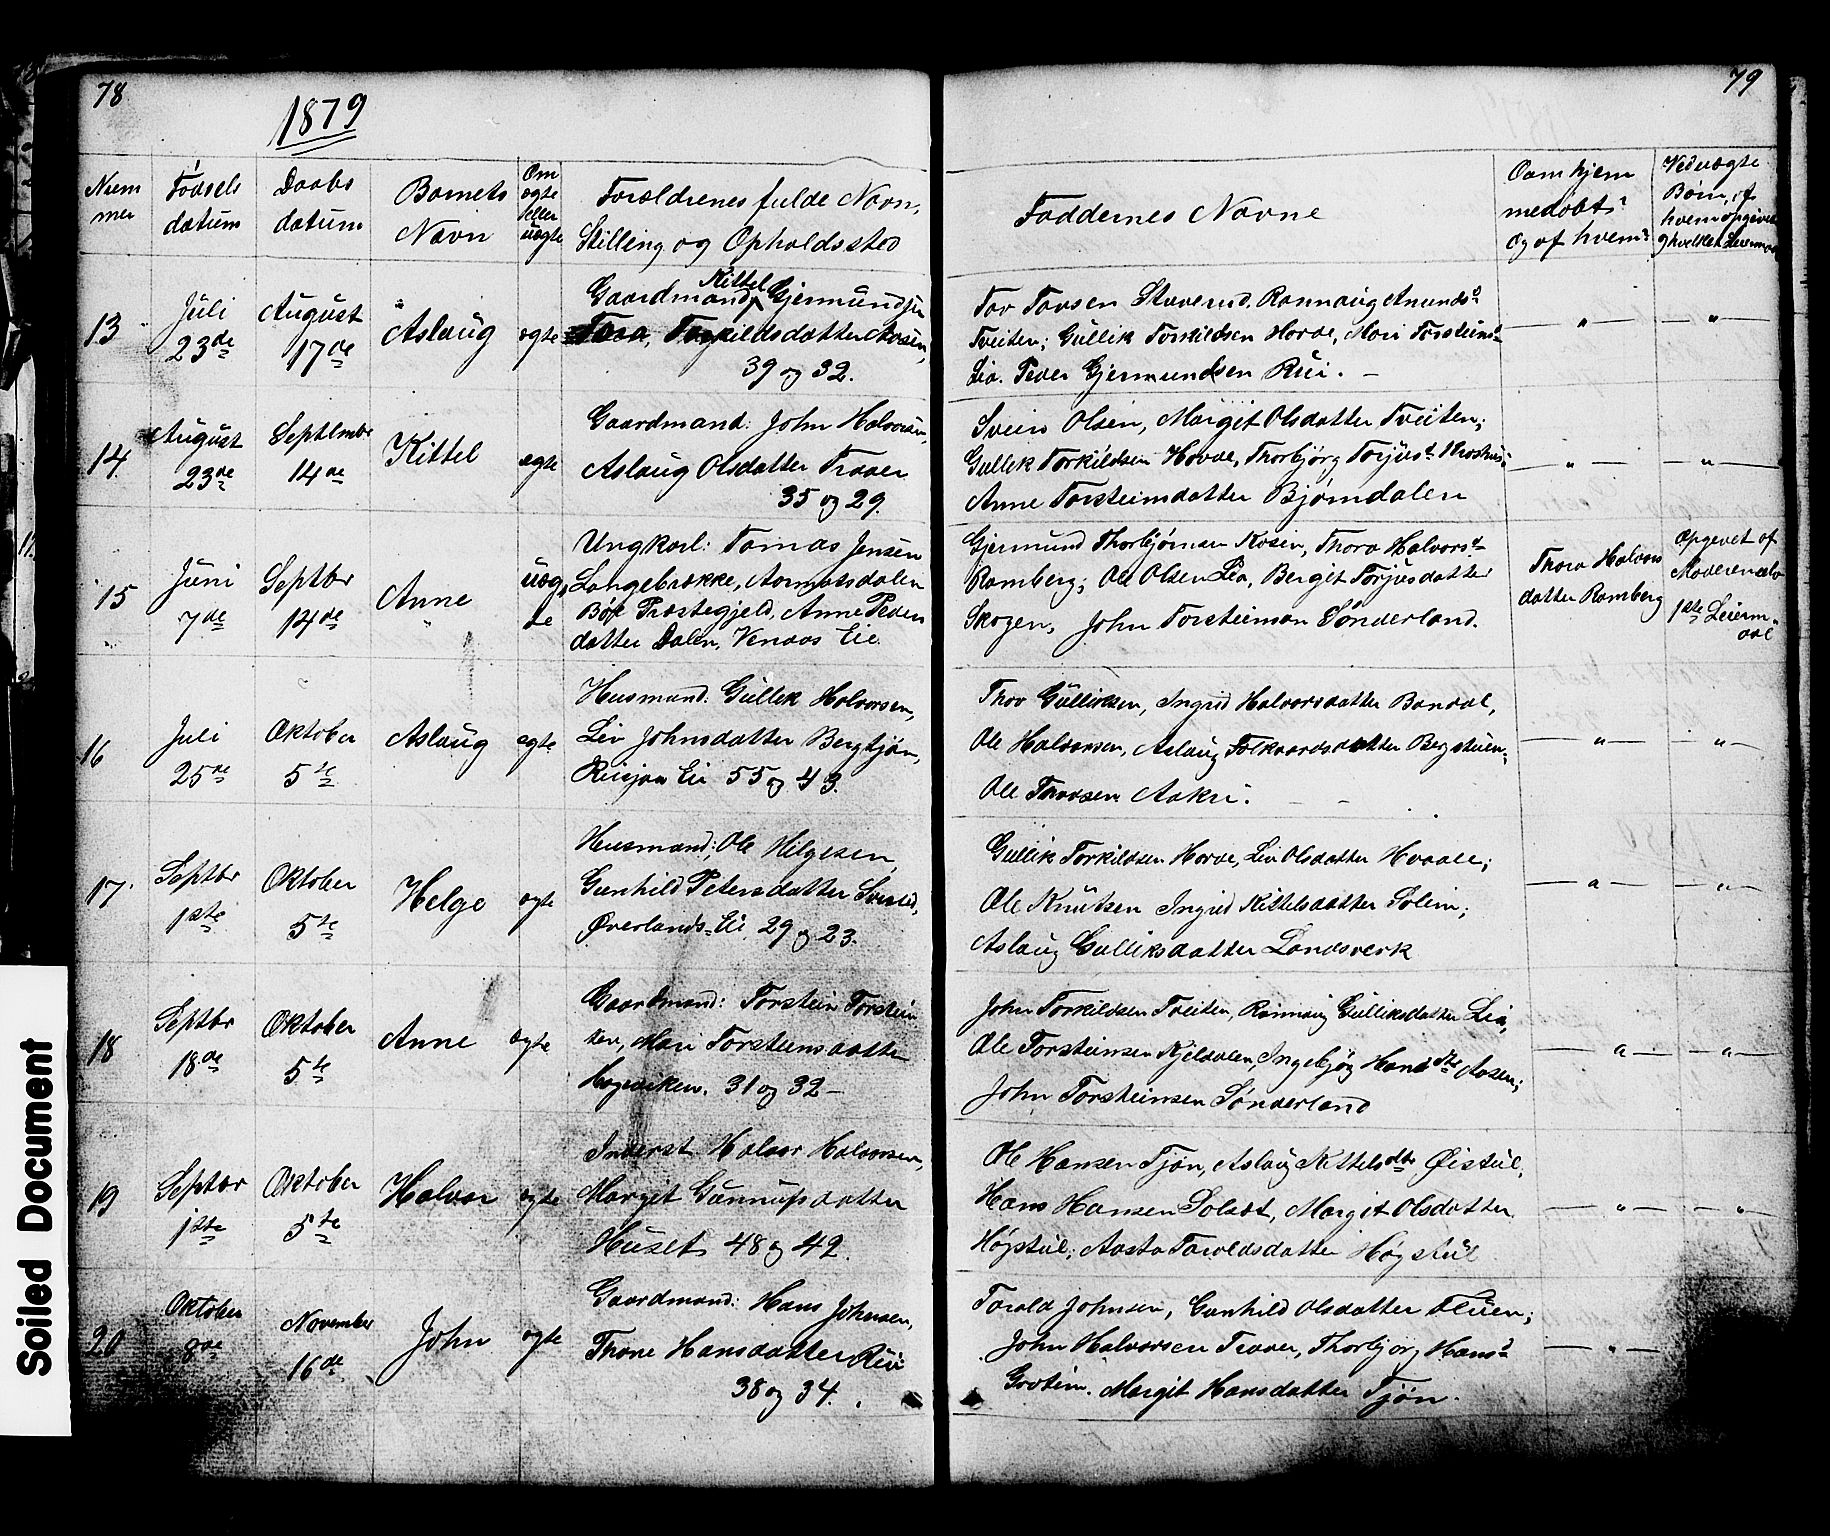 78
1879
Num
mer
Födsels
datum
Daabs
datum
Barnets
Navn
Om
ægte
eller
uægte
Forældrenes fulde Navn,
Stilling og Opholdssted
13
Juli
23de
August
17de
Aslaug
ægte
Kittel
Gaardmand, Gjermundsen
Tora, Torkildsdatter Aasen,
39 og 32.
14.
August
23de
Septembr
14de
Kittel
ægte
Gaardmand: John Halvorsen,
Aslaug Olsdatter Traaen
35 og 29.
15
Juni
7de
Septbr
14de
Anne
uæg
te
Ungkarl: Tomas Jensen
Langebrække, Aarnæsdalen
Bø Præstegjeld, Anne Peders
datter Dalen, Venaas Eie.
16
Juli
25de
Oktober
5te
Aslaug
ægte
Husmand: Gullik Halvorsen,
Liv Johnsdatter Bergtjøn,
Eie 55 og 43.
17.
Septbr
1ste
Oktober
5te
Helge
ægte
Husmand; Ole Helgesen,
Gunhild Petersdatter
Øverlands-Eie, 29 og 23.
18
Septbr
18de
Oktober
5te
Anne
ægte
Gaardmand: Torstein Torstein
sen, Mari Torsteinsdatter
Hogeviken. 31 og 32 —
19
Septbr
1ste
Oktober
5te
Halvor
ægte
Inderst Halvor Halvorsen,
Margit Gunnulfsdatter
Huset, 48 og 42.
20
Oktober
8de
November
16de
John
ægte
Gaardmand: Hans Johnsen,
Thore Hansdatter Rui
38 og 34.
79
Faddernes Navne
Om hjem
medøbt?
Og af hvem?
Ved uægte
Børn, af
hvem opgivet
og hvilket Leiermaal
Tov Tovsen Staverud, Rannaug Amundsd.
Tveiten; Gullik Torkildsen Hovde, Mari Torsteinsd.
Lia. Peder Gjermundsen Rui. —
— " —
— " —
Svein Olsen, Margit Olsdatter Tveiten;
Gullik Torkildsen Hovde, Thorbjörg Torjusd.
Anne Torsteinsdatter Bjørndalen
— " —
— " —
Gjermund Thorbjørnsen Aasen, Thora Halvorsd.
Ramberg; Ole Olsen Lia, Bergit Torjusdatter
Skogen, John Torsteinson Sønderland.
Thora Halvors
datter Ramberg
Opgivet af
Moderen
1ste Leierm-
aal
Thov Gulliksen, Ingrid Halvorsdatter Bondal,
Ole Halvorsen, Aslaug Folkvardsdatter Bergstuen;
Ole Thovsen Aakre.
— " —
— " —
Gullik Torkildsen Hovde, Liv Olsdatter Hvaale;
Ole Knudsen Ingrid Kittelsdatter Solem;
Aslaug Gulliksdatter Landsverk
— " —
— " —
John Torkildsen Tveiten, Rannaug Gulliksdatter Lia,
Ole Torsteinsen Kjeldalen, Ingebjøg Hansdtr Aasen;
John Torsteinsen Sønderland
— " —
— " —
Ole Hansen Tjøn, Aslaug Kittelsdtr Øistul,
Hans Hansen Solaat, Margit Olsdatter
Høgstul; Aasta Taraldsdatter Høgstul
— " —
— " —
Torald Johnsen, Gunhild Olsdatter Fluen;
John Halvorsen Traaen, Thorbjørg Hansd.
Grotin. Margit Hansdatter Tjøn.
— " —
Soiled Document